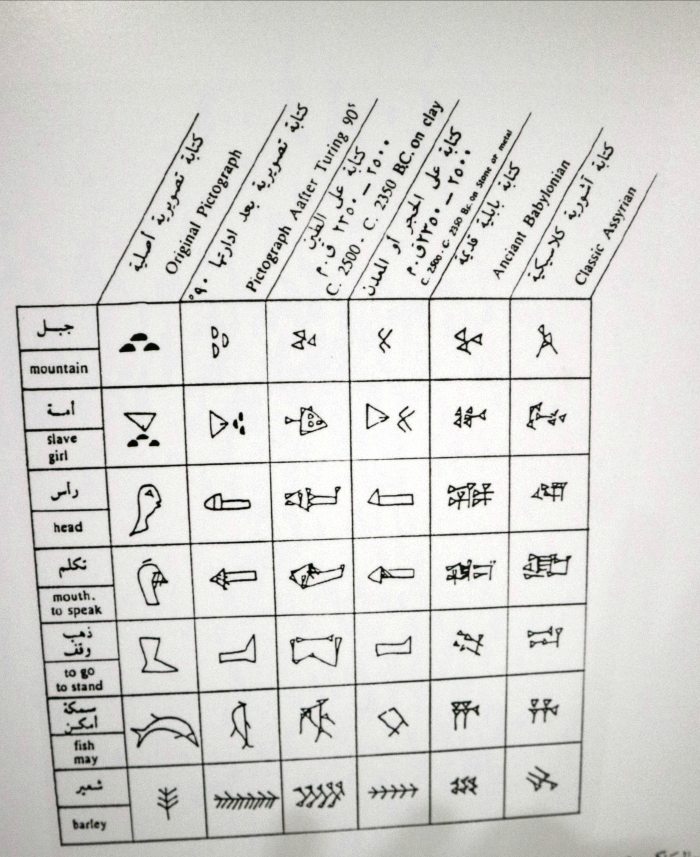 كتابة تصويرية أصلية
Original Pictograph
كتابة تصويرية بعد ادارتها ٩٠°
Pictograph Aafter Turing 90°
كتابة على الطين
٢٥٠٠ – ٢٣٥٠ ق.م
C. 2500 - C. 2350 B.C. on clay
كتابة على الحجر أو المعدن
٢٥٠٠ – ٢٣٥٠ ق.م
C. 2500 - C. 2350 Bc. on Stone or metal
كتابة بابلية قديمة
Anciant Babylonian
كتابة آشورية كلاسيكية
Classic Assyrian
جبل
mountain
أمة
slave
girl
رأس
head
تكلم
mouth.
to speak
ذهب
وقف
to go
to stand
سمكة
أمكن
fish
may
شعير
barley